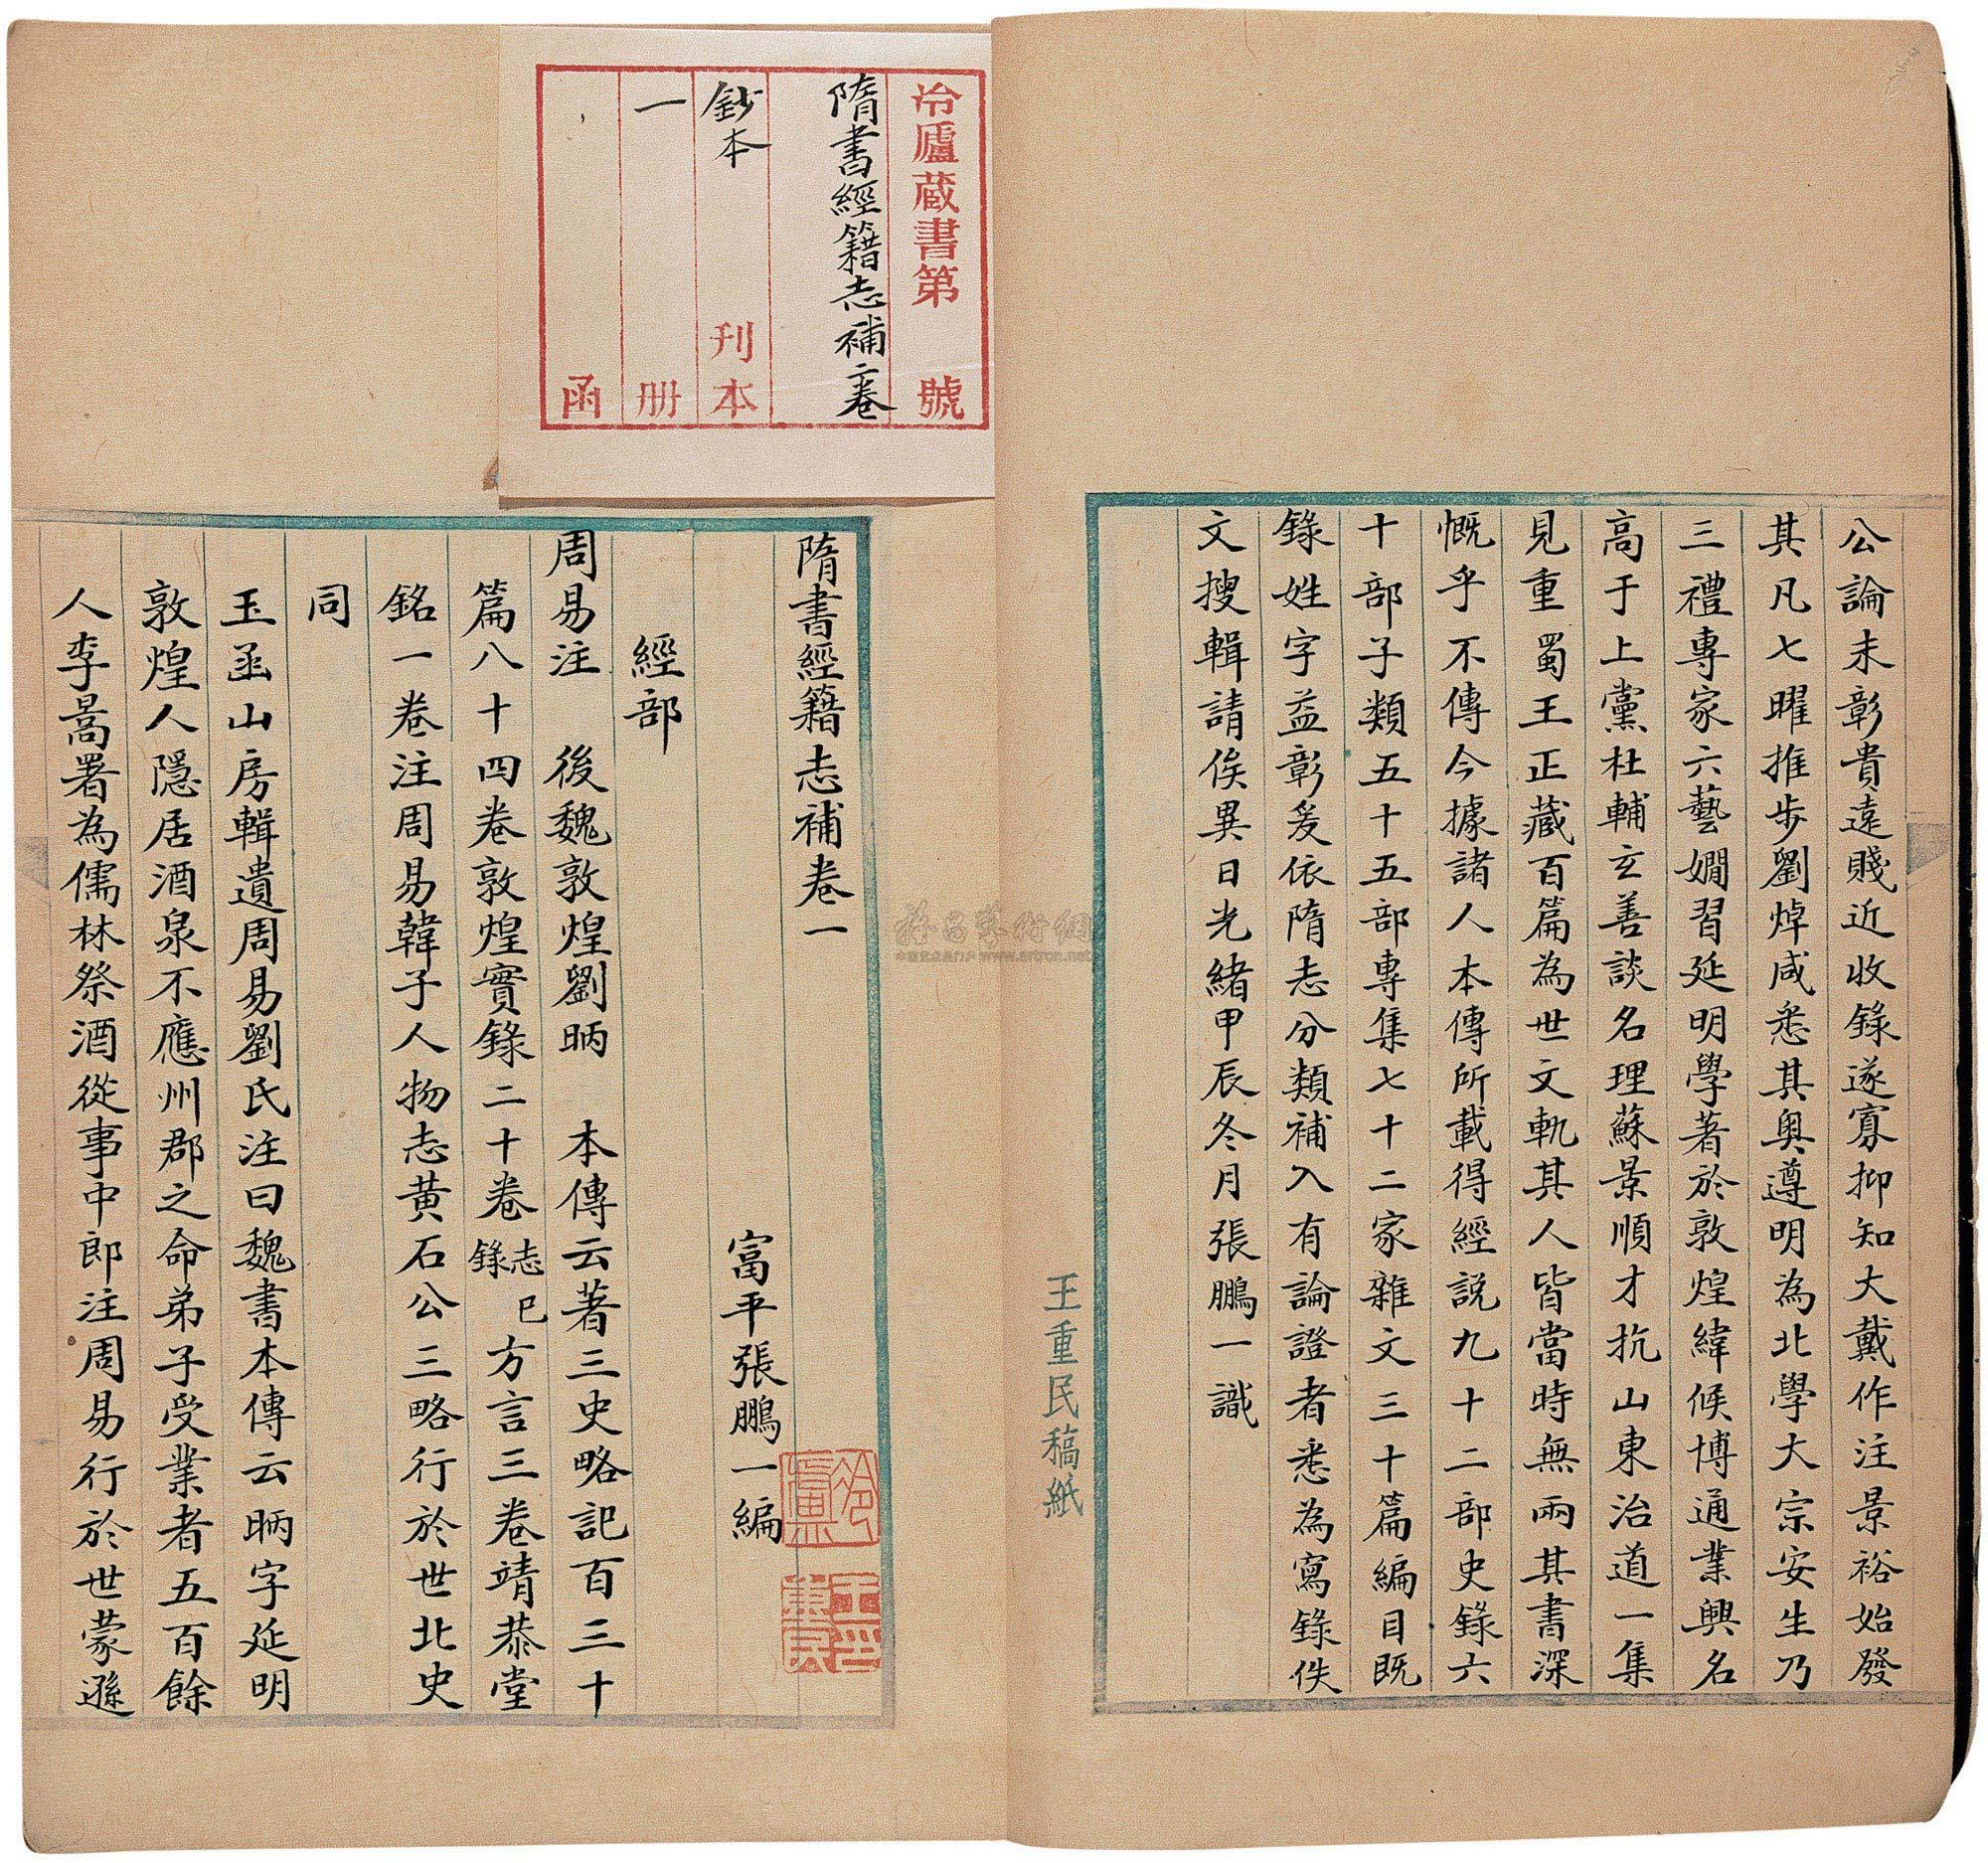 公論未彰貴遠賤近收錄遂寡抑知大戴作注景裕始發
其凡七曜推步劉焯咸悉其奥遵明為北學大宗安生乃
三禮專家六藝嫺習延明學著於敦煌緯候博通業興名
高于上黨杜輔玄善談名理蘇景順才抗山東治道一集
見重蜀王正藏百篇為世文軌其人皆當時無兩其書深
慨乎不傳今據諸人本傳所載得經説九十二部史錄六
十部子類五十五部專集七十二家雜文三十篇編目既
錄姓字益彰爰依隋志分類補入有論證者悉為寫錄佚
文搜輯請俟異日光緒甲辰冬月張鵬一識
王重民稿紙
冷廬蔵書第 號
隋書經籍志補二卷
鈔本 刊本
一 册
函
隋書經籍志補卷一
富平張鵬一編
經部
周易注 後魏敦煌劉昞 本傳云著三史略記百三十
篇八十四卷敦煌實錄二十卷志已錄方言三卷靖恭堂
銘一卷注周易韓子人物志黄石公三略行於世北史
同
玉函山房輯遺周易劉氏注曰魏書本傳云昞字延明
敦煌人隱居酒泉不應州郡之命弟子受業者五百餘
人李暠署為儒林祭酒從事中郎注周易行於世蒙遜
冷廬
王重民印
www.artron.net